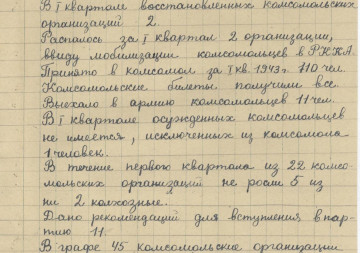 В I квартале восстановленных комсомольских
организаций 2.
Распалось за I квартал 2 организации,
ввиду мобилизации комсомольцев в РККА.
Принято в комсомол за I кв. 1943 г. 110 чел.
Комсомольские билеты получили все.
Выехало в армию комсомольцев 11 чел.
В I квартале осужденных комсомольцев
не имеется, исключенных из комсомола
1 человек.
В течение первого квартала из 22 комсо-
мольских организаций не росли 5 из
ни 2 колхозные.
Дано рекомендаций для вступления в пар-
тию 11.
В графе 45 комсомольские организации